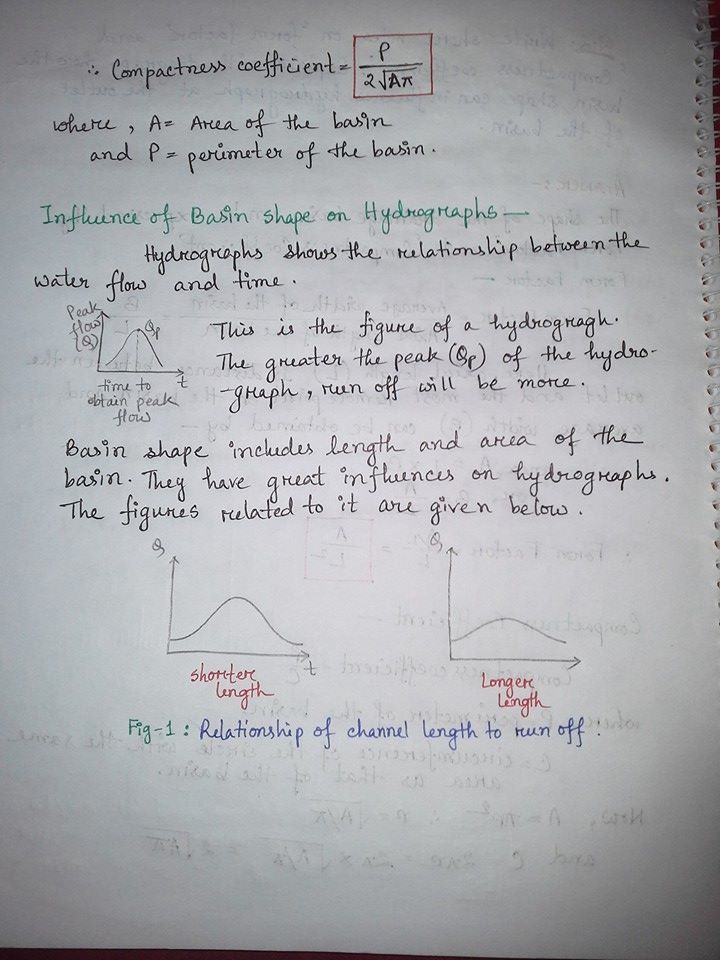 ∴ Compactness coefficient = P / 2√Aπ
where, A = Area of the basin
and P = perimeter of the basin.
Influence of Basin shape on Hydrographs —
Hydrographs shows the relationship between the
water flow and time.
Peak
flow
(Q)
Qp
t
time to
obtain peak
flow
This is the figure of a hydrogragh.
The greater the peak (Qp) of the hydro-
-graph run off will be more.
Basin shape includes length and area of the
basin. They have great influences on hydrographs.
The figures related to it are given below.
Q
t
shorter
length
Q
Longer
length
Fig-1 : Relationship of channel length to run off :